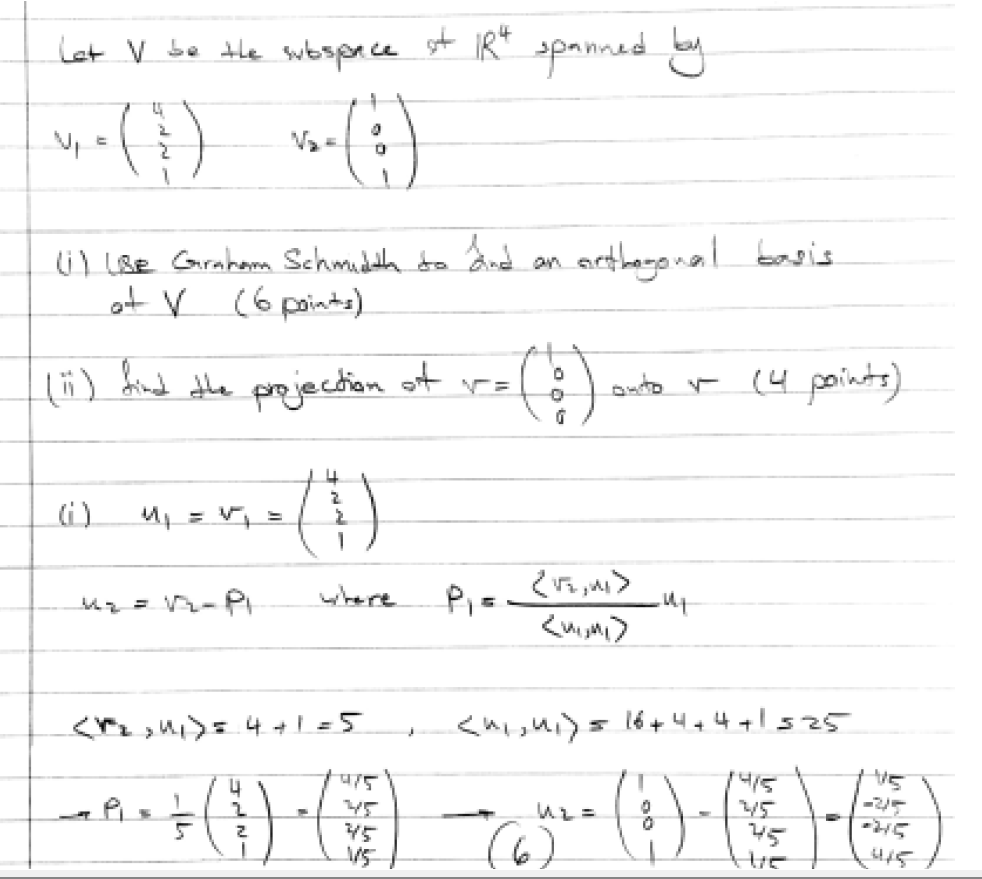 Let V be the subspace of ℝ⁴ spanned by
V₁ = (4 2 2 1) V₂ = (1 0 0 1)
(i) Use Graham Schmiddth to find an orthogonal basis
of V (6 points)
(ii) find the projection of v = (1 0 0 0) onto v (4 points)
(i) u₁ = v₁ = (4 2 2 1)
u₂ = v₂ - P₁ where P₁ = <v₂,u₁> / <u₁,u₁> u₁
<v₂,u₁> = 4+1 = 5, <u₁,u₁> = 16+4+4+1 = 25
→ P₁ = 1/5 (4 2 2 1) = (4/5 2/5 2/5 1/5) → u₂ = (1 0 0 1) - (4/5 2/5 2/5 1/5) = (1/5 -2/5 -2/5 4/5)
(6)